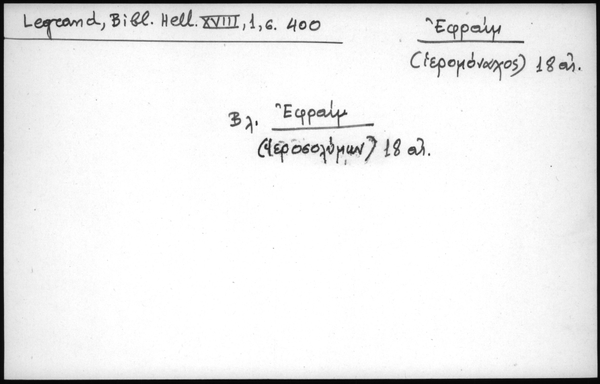 Legrand, Bibl. Hell. XVIII, 1, σ. 400
Ἐφραίμ
(ἱερομόναχος) 18 αἰ.
Βλ. Ἐφραίμ
(Ἱεροσολύμων) 18 αἰ.